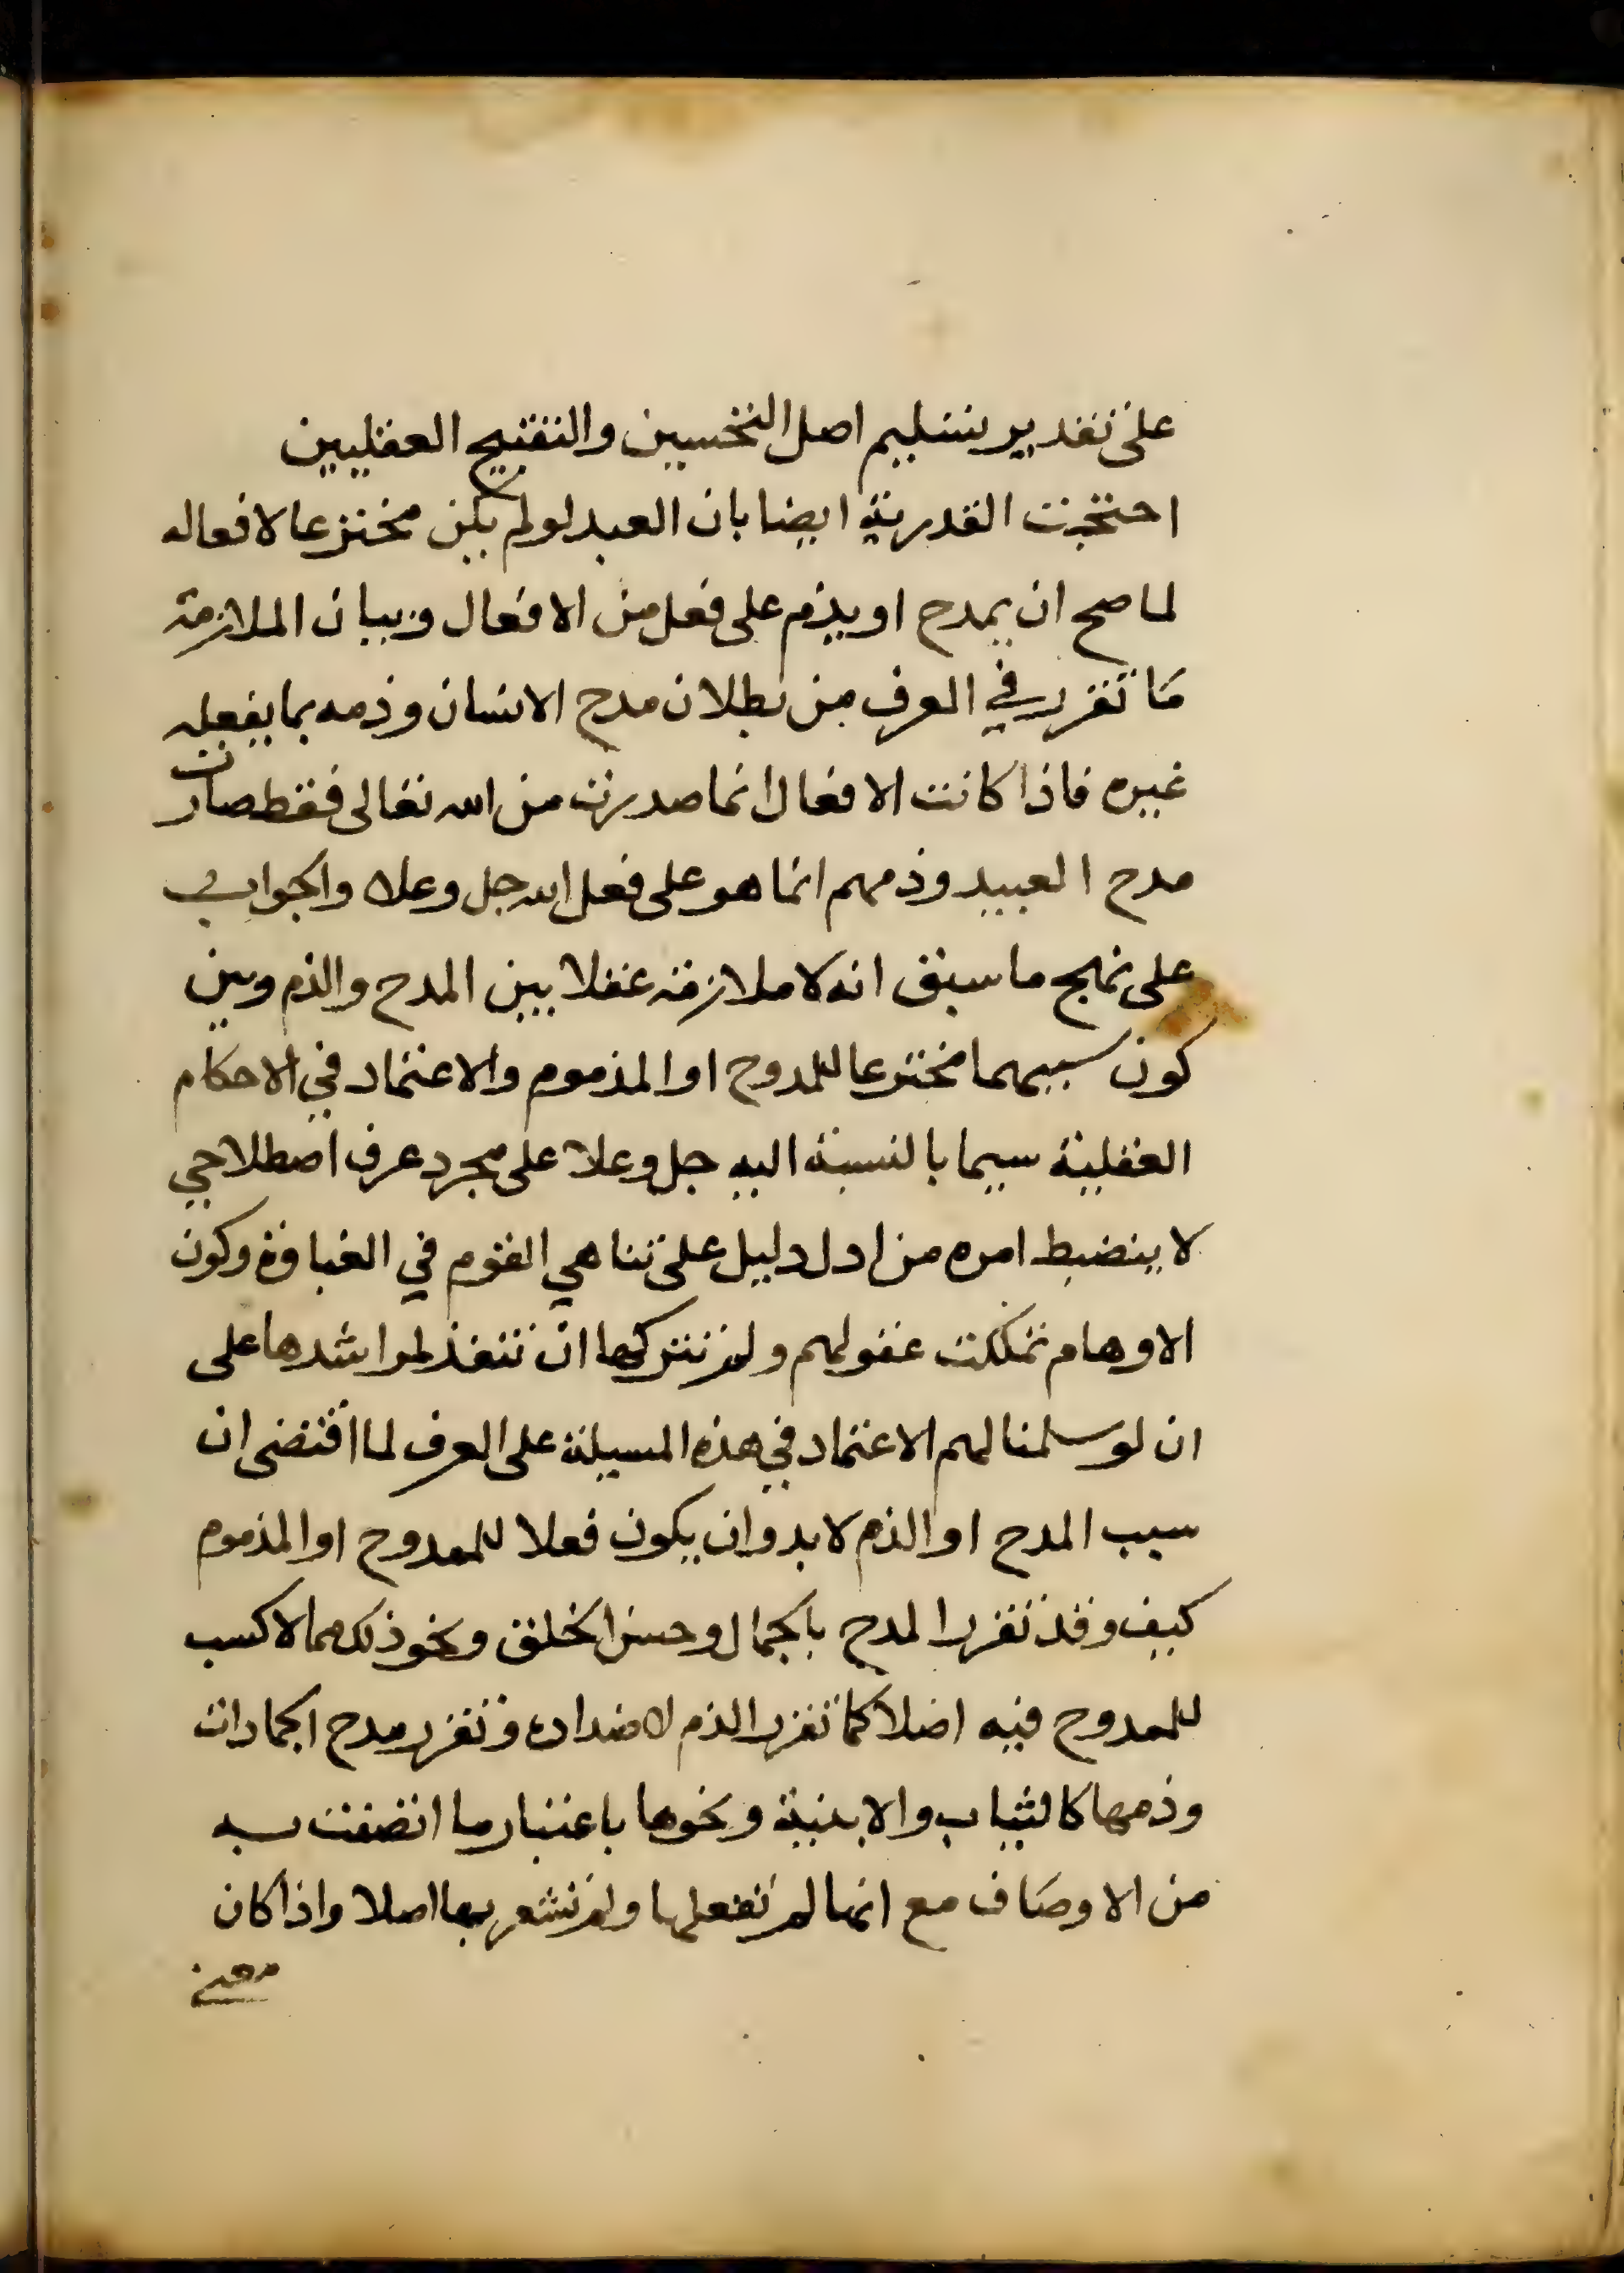 على تقدير تسليم اصل التحسين والتقبيح العقليين
احتجت القدرية ايضا بان العبد لو لم يكن مخترعا لافعاله
لما صح ان يمدح او يذم على فعل من الافعال وبيان الملازمة
ما تقرر في العرف من بطلان مدح الانسان وذمه بما يفعله
غيره فاذا كانت الافعال انما صدرت من الله تعالى فقط صارت
مدح العبيد وذمهم انما هو على فعل الله جل وعلا والجواب
على نهج ما سبق انه لا ملازمة عقلا بين المدح والذم وبين
كون سببهما مخترعا للمدوح او المذموم والاعتماد في الاحكام
العقلية سيما بالنسبة اليه جل وعلا على مجرد عرف اصطلاحي
لا ينضبط امره من ادل دليل على تناهي القوم في الغباوة وكون
الاوهام تملكت عقولهم ولم تتركها ان تنفذ لمراشدها على
ان لو سلمنا لهم الاعتماد في هذه المسيلة على العرف لما اقتضى ان
سبب المدح او الذم لا بد وان يكون فعلا للممدوح او المذموم
كيف وقد تقرر المدح بالجمال وحسن الخلق ونحو ذلك مما لا كسب
للممدوح فيه اصلا كما تقرر الذم لاضداده وتقرر مدح الجمادات
وذمها كالثياب والابنية ونحوها باعتبار ما اتصفت به
من الاوصاف مع انها لم تفعلها ولم تشعر بها اصلا واذا كان
معنى